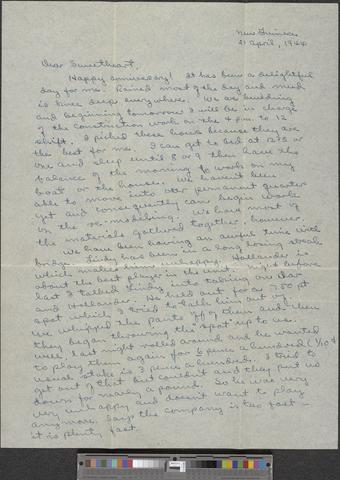 New Guinea
21 April, 1944
Dear Sweetheart,
Happy anniversary! It has been a delightful
day for me. Rained most of the day and mud
is knee deep everywhere. We are building
and beginning tomorrow I will be in charge
of the construction work on the 4 p.m. to 12
shift. I picked these hours because they are
the best for me. I can get to bed at 12:30 or
one and sleep until 8 or 9 then have the
balance of the morning to work on my
boat or the house. We haven't been
able to move into our permanent quarters
yet and consequently can't begin work
on the re-modeling. We have most of
the materials gathered together, however.
We have been having an awful time with
bridge. Lindy has been in a long losing streak
which makes him unhappy. Hollander is
about the best player in the unit. Night before
last I talked Lindy into taking on Dar
and Hollander. He held out for a 750 pt
spot which I tried to talk him out of.
We whipped the pants off of them and then
they began throwing the spot up to us.
Well, last night rolled around and he wanted
to play them again for 6 pence a hundred (1/10 ¢
usual stake is 3 pence a hundred. I tried to
get out of that but couldn't and they put us
down for nearly a pound. So he was very
very unhappy and doesn't want to play
anymore. Says the company is too fast –
it is plenty fast.